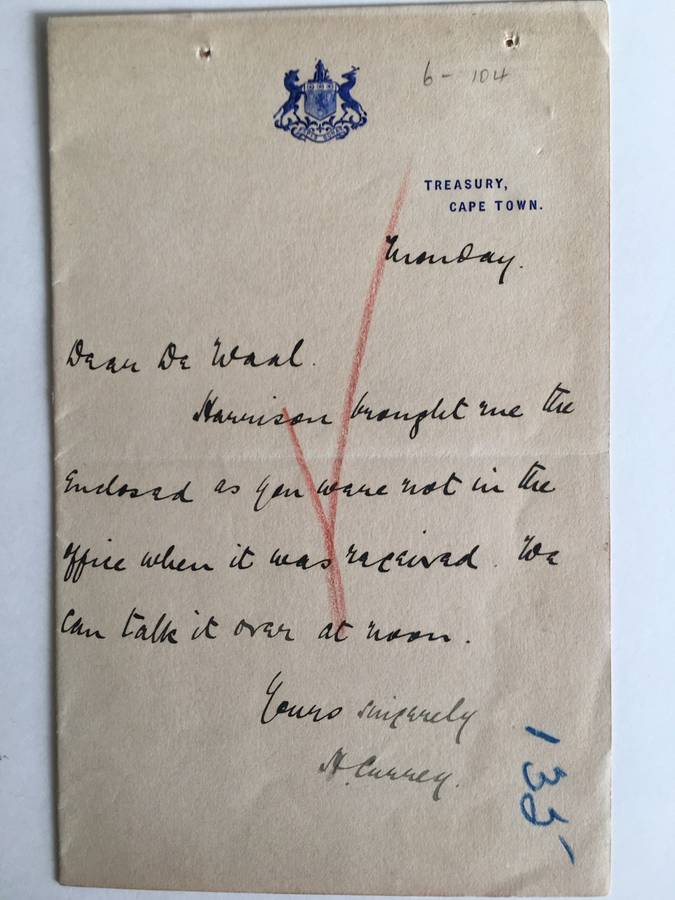 6 - 104
TREASURY,
CAPE TOWN.
Monday.
Dear De Waal.
Harrison brought me the
enclosed as you were not in the
office when it was received. We
can talk it over at noon.
Yours sincerely
H. Currey.